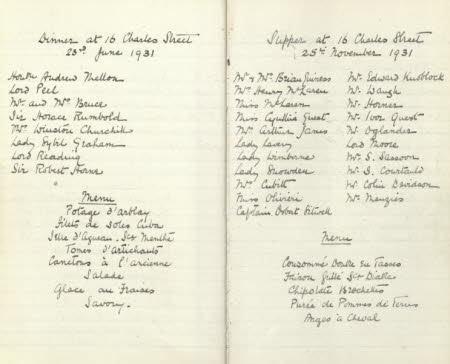 Dinner at 16 Charles Street
23rd June 1931
Honble Andrew Mellon
Lord Peel
Mr. and Mrs Bruce
Sir Horace Rumbold
Mrs Winston Churchill
Lady Sybil Graham
Lord Reading
Sir Robert Horne
Menu
Potage d'Arblay
Filets de Soles Cuba
Selle d'Agneau. Sce Menthe
Fonds d'Artichauts
Canetons à l'ancienne
Salade
Glace au Fraises
Savory.
Supper at 16 Charles Street
25th November 1931
Mr & Mrs Brian Guiness
Mrs Henry McLaren
Miss McLaren
Miss Cynthia Guest
Mrs Arthur James
Lady Lavery
Lady Wimborne
Lady Snowden
Mrs Cubitt
Miss Olivieri
Captain Osbert Sitwell
Mr. Edward Knoblock
Mr. Waugh
Mr. Horner
Mr. Ivor Guest
Mr. Oglander
Lord Moore
Mr. S. Sassoon
Mr. S. Courtauld
Mr. Colin Davidson
Mr. Menzies
Menu
Consommé Double en Tasses
Grillé Sce Diable
Chipolata Brochettes
Purée de Pommes de Terres
Anges à Cheval